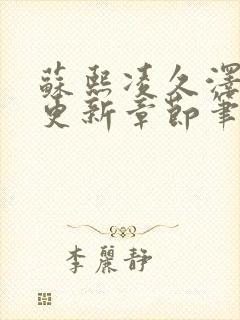 蘇熙凌久澤
更新章節筆
李麗靜